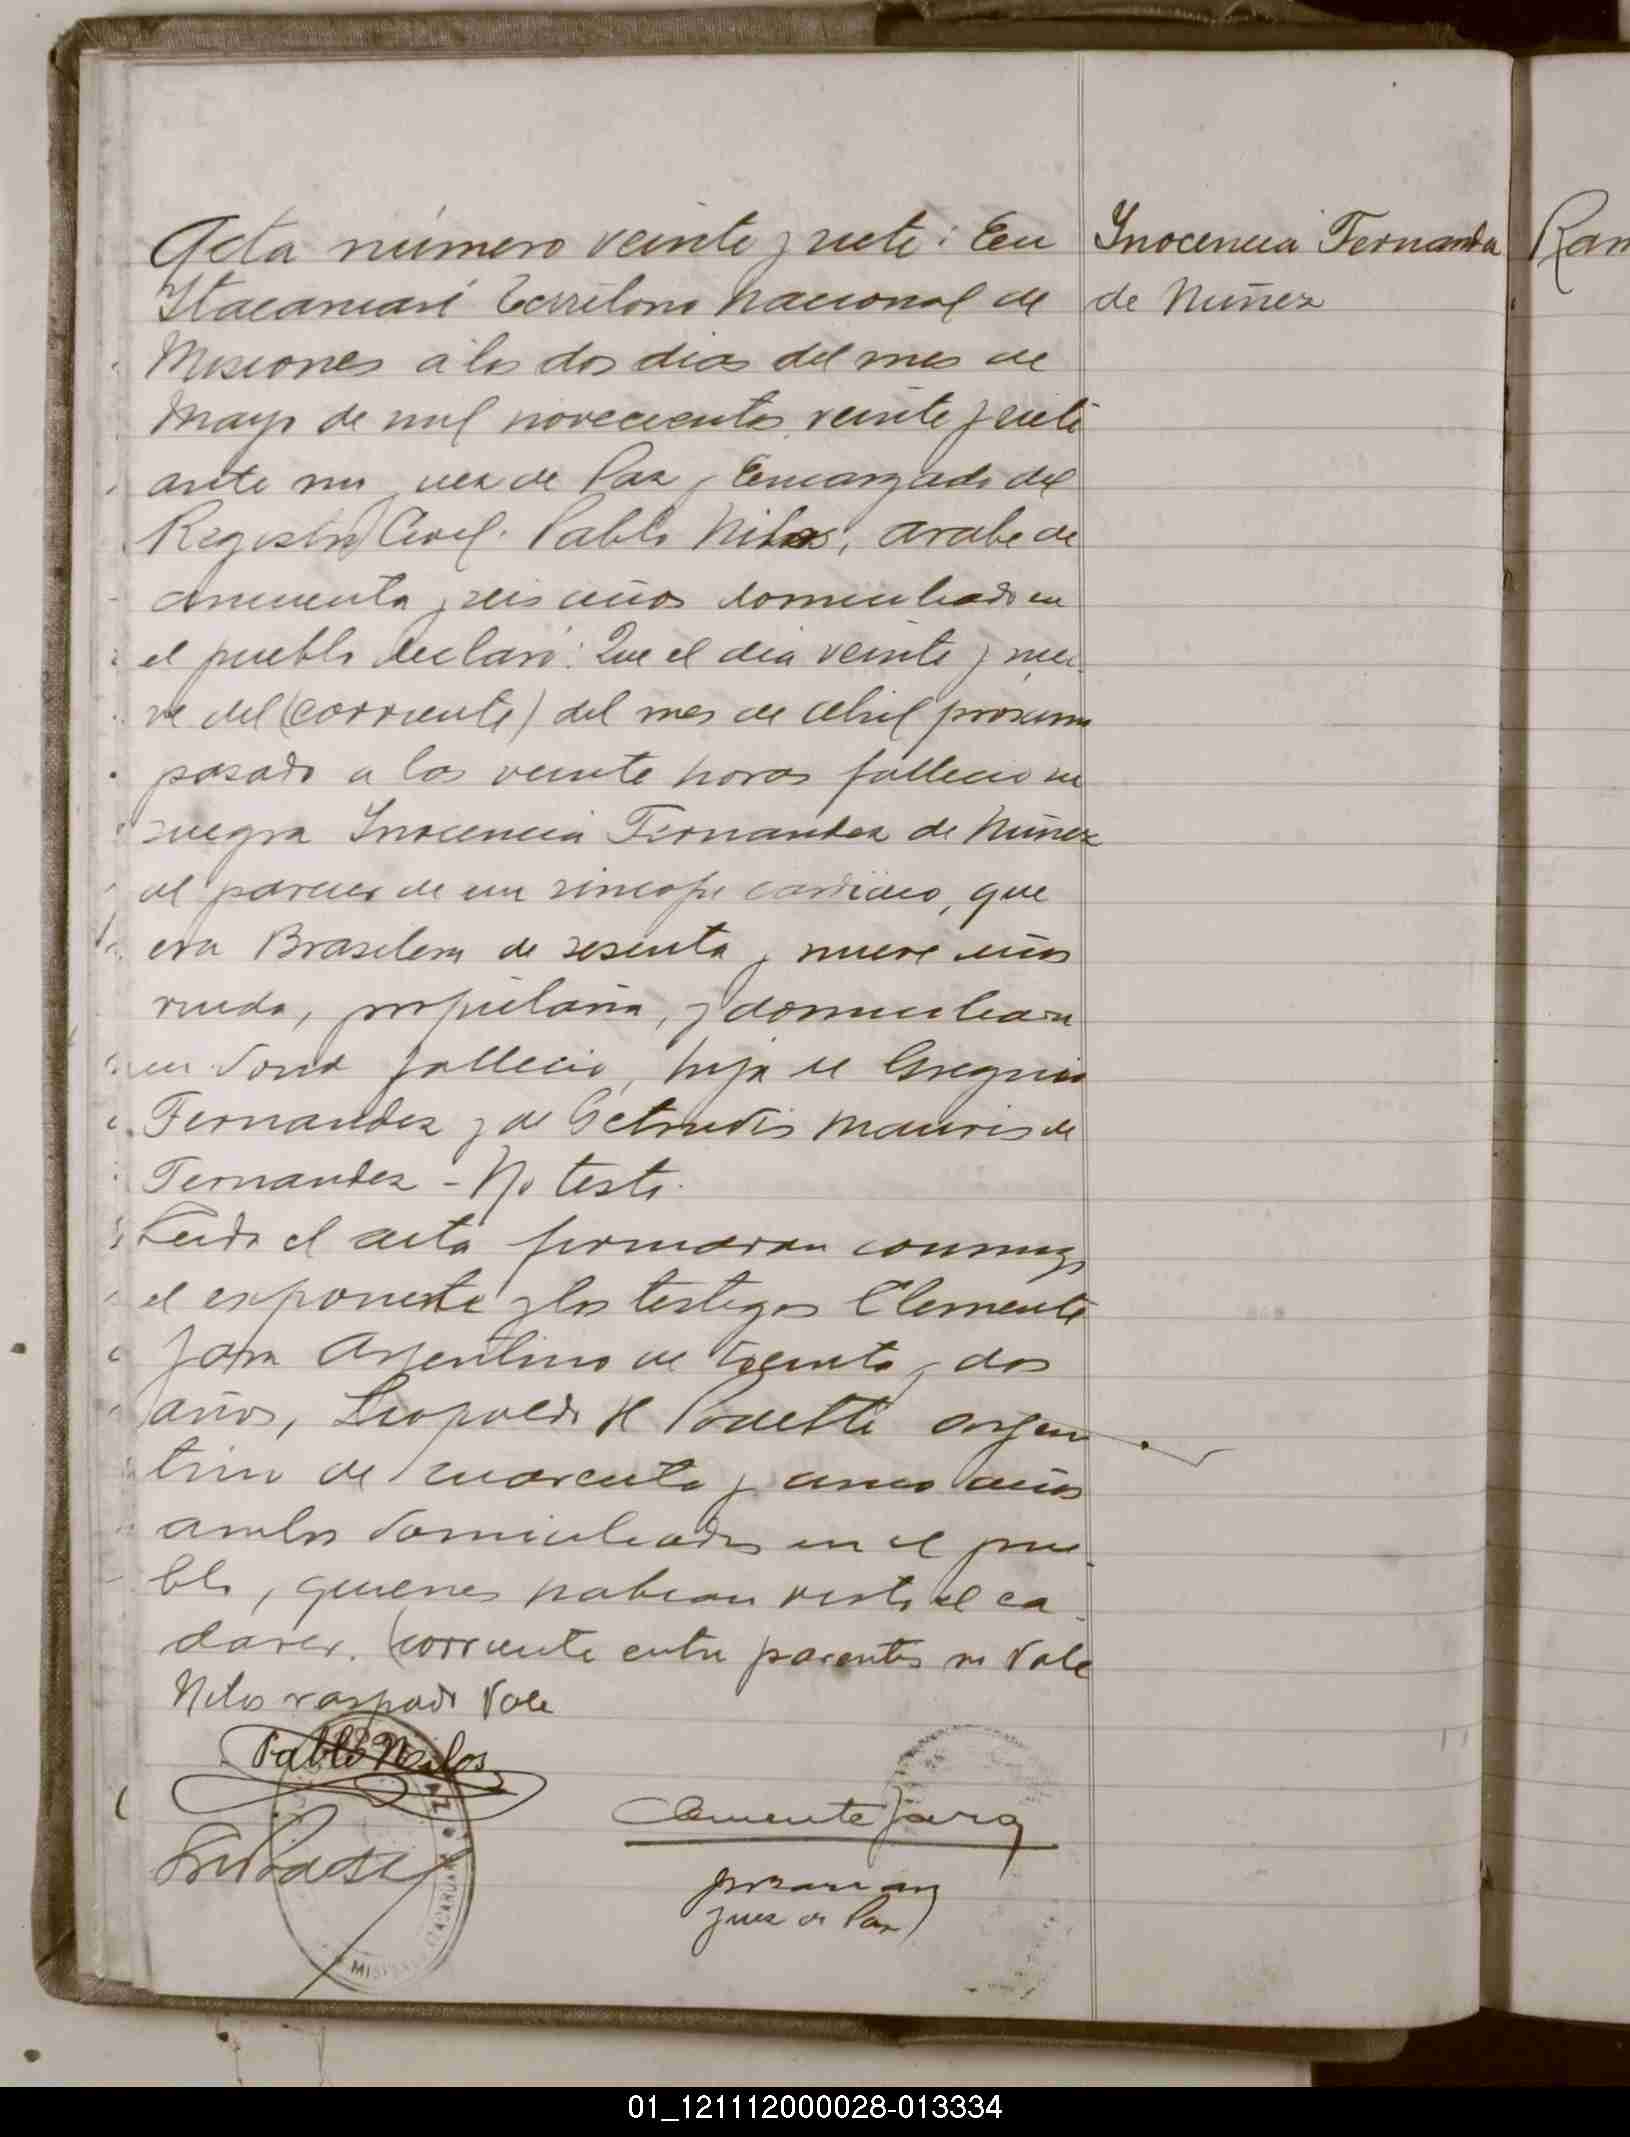 Acta número veinte y siete: En
Itacaruaré Territorio Nacional de
Misiones a los dos dias del mes de
Mayo de mil novecientos veinte y siete
ante mi Juez de Paz y Encargado del
Registro Civil. Pablo Nilos, arabe de
cincuenta y seis años domiciliado en
el pueblo declaró: Que el dia veinte y nue-
ve del (corriente) del mes de Abril próximo
pasado a las veinte horas fallecio su
suegra Inocencia Fernandez de Nuñez
al parecer de un sincope cardiaco, que
era Brasilera de sesenta y nueve años
viuda, propietaria, y domiciliada
en donde fallecio, hija de Gregorio
Fernandez y de Getrudis Mauris de
Fernandez - No testó.
Leida el acta firmaron conmigo
el exponente y los testigos Clemente
Jara Argentino de treinta y dos
años, Leopoldo H argen
tino de cuarenta y cinco años
ambos domiciliados en el pue-
blo, quienes habian visto el ca-
daver. (corriente entre parentes no Vale
Nilos raspado Vale
Pablo Nilos
Clemente Jara
Juez de Paz
MISIONES
Inocencia Fernandez
de Nuñez
Ram
01_121112000028-013334